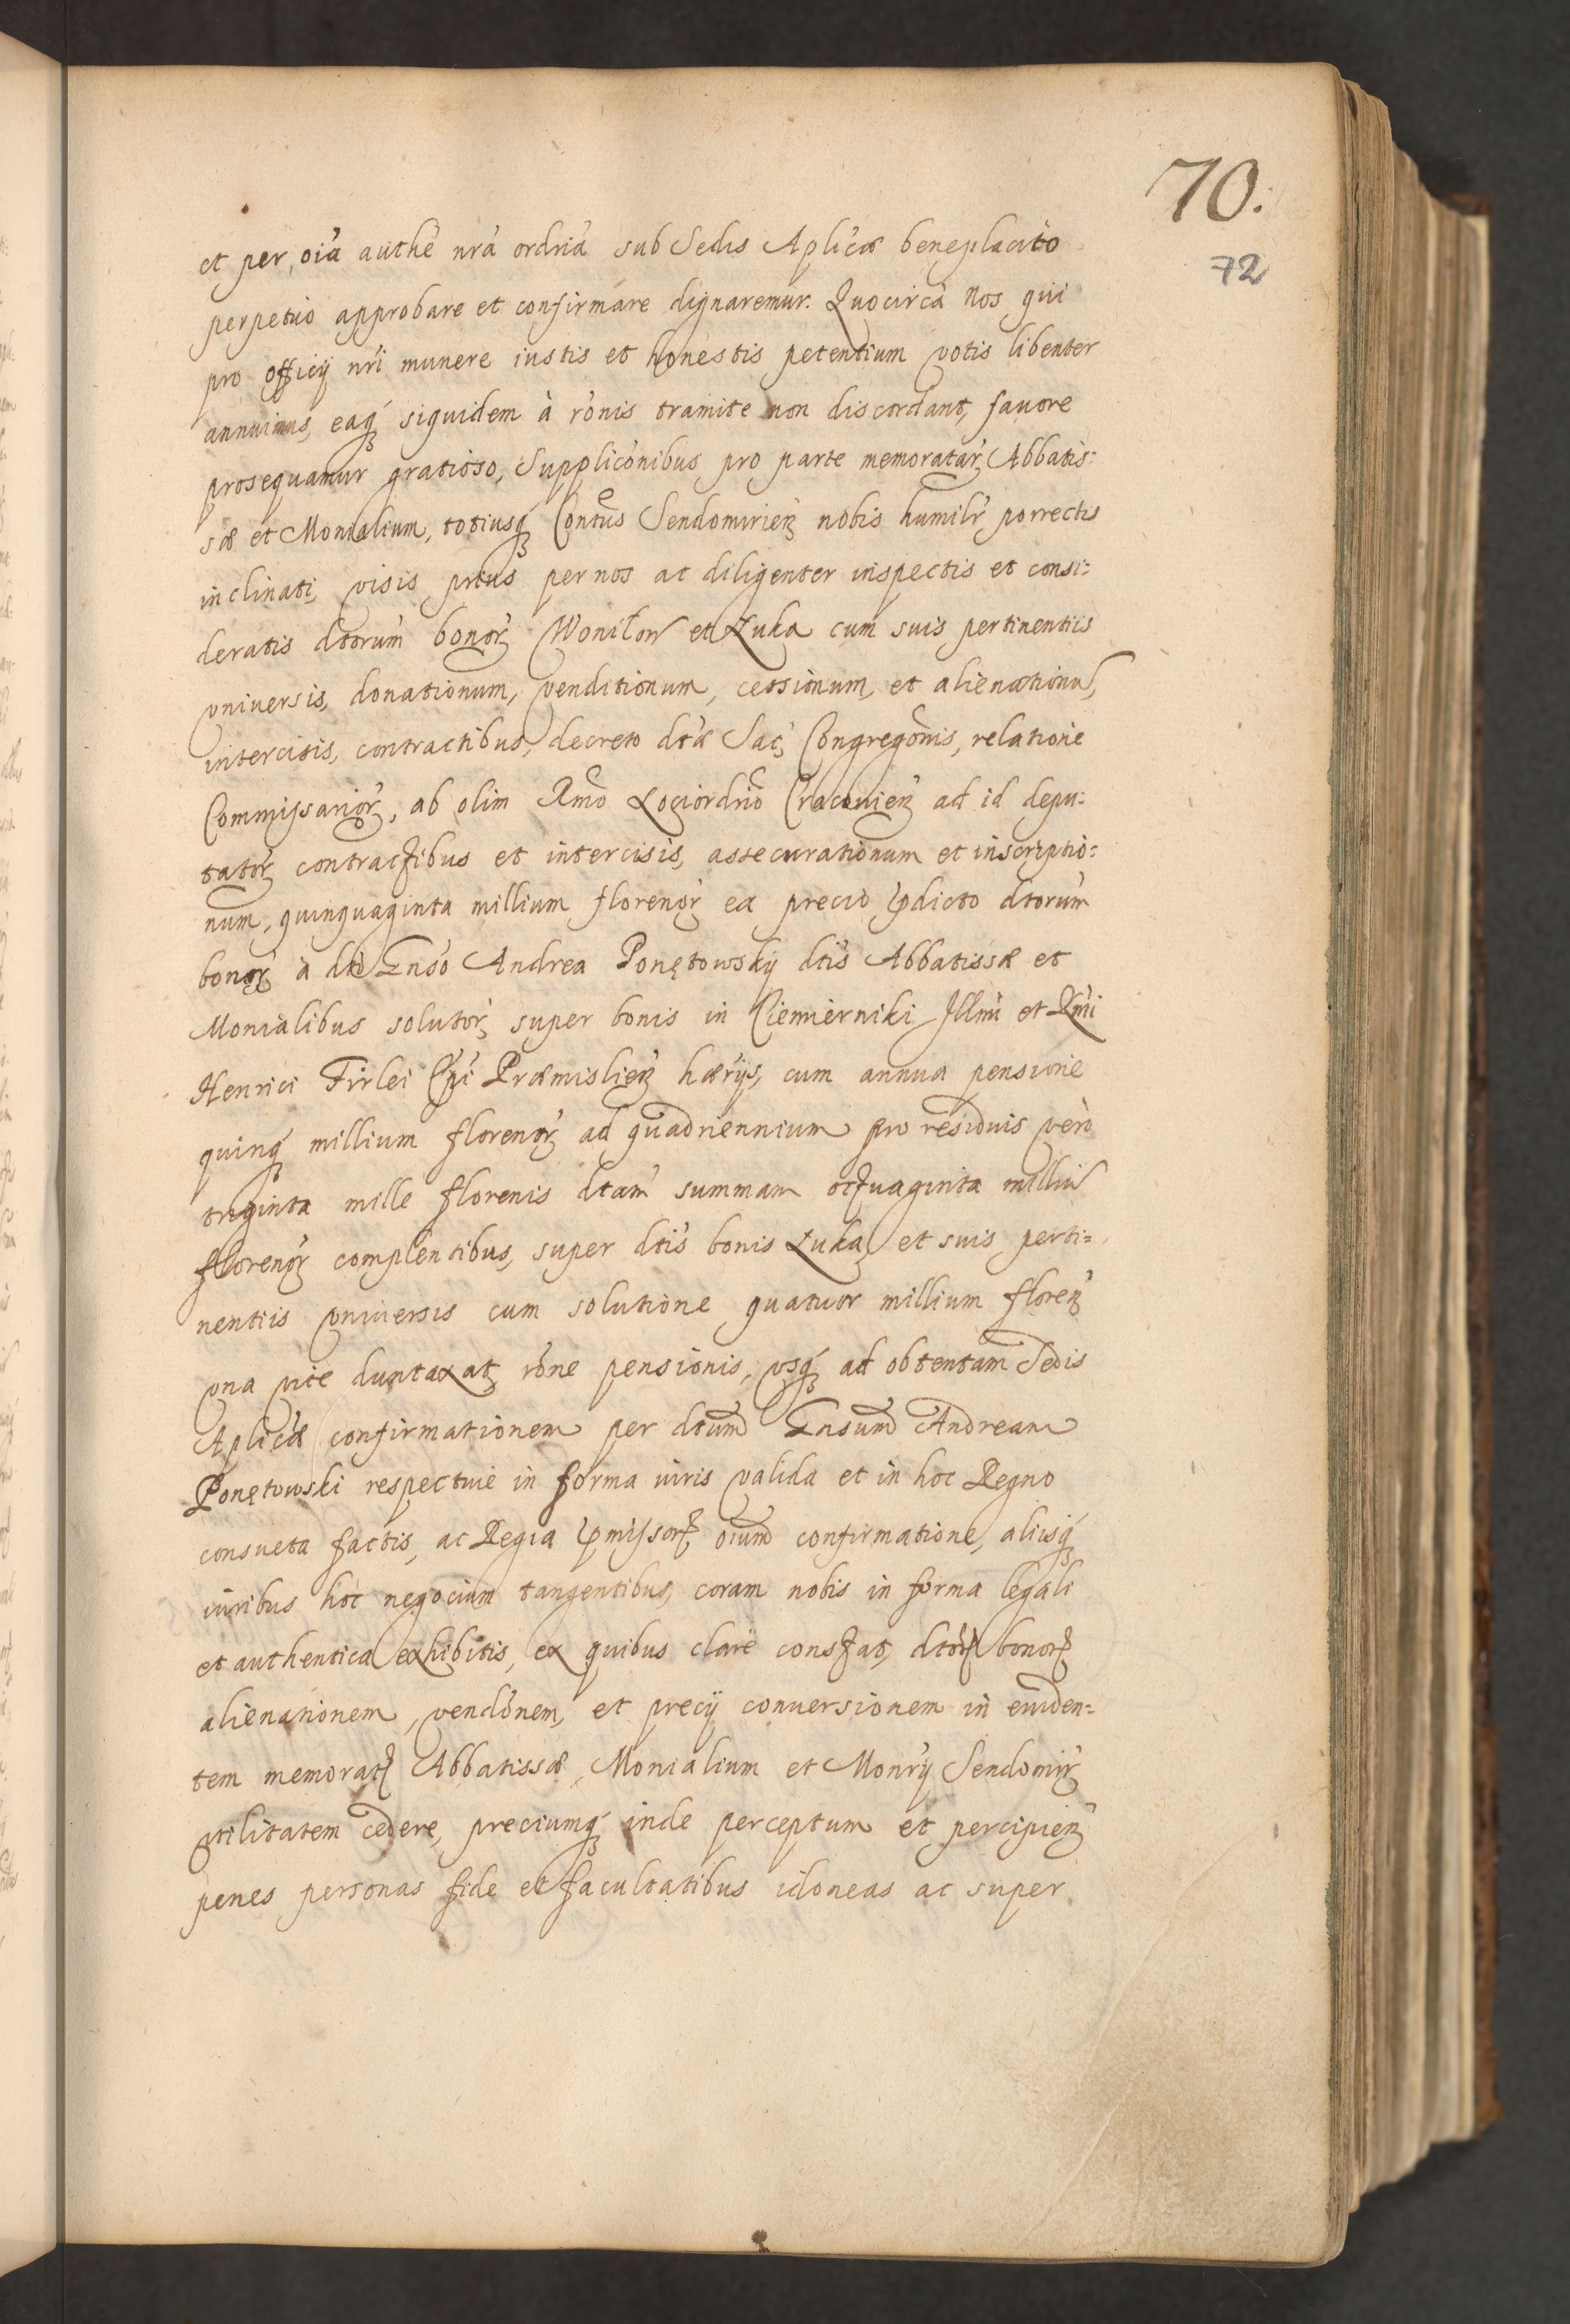 70.
72
et per oia authe nra ordria sub Sedis Aplicæ beneplacito
perpetuo approbare et confirmare dignaremur. Quocirca Nos qui
pro officij nri munere iustis et honestis petentium votis libenter
annuimus, eaq₃ siquidem à ronis tramite non discordant, favore
prosequamur gratioso, Suppliconibus pro parte memoratar₃ Abbatis:
sæ et Monialium, totiusq₃ Contus Sendomirien₃ nobis humilr porrectis
inclinati, visis prius per nos ac diligenter inspectis et consi:
deratis dtorum bonor₃ Woniłow et Łuka cum suis pertinentiis
vniversis, donationum, venditionum, cessionum, et alienationu,
intercisis, contractibus, decreto dtæ Sac₃ Congregonis, relatione
Commissarior₃, ab olim Rmo Logiordrio Cracovien₃ ad id depu:
tator₃ contractibus et intercisis, assecurationum et inscriptio:
num, quinquaginta millium florenor₃ ex precio prdicto dtorum
bonor₃ à dto Gnso Andrea Ponętowskij dtis Abbatissæ et
Monialibus solutor₃ super bonis in Ciemierniki Illmi et Rmi
Henrici Firlei Epi Præmislien₃ hærijs, cum annua pensione
quinq₃ millium florenor₃ ad quadriennium pro residuis vero
triginta mille florenis dtam summam octuaginta milliu
florenor₃ complentibus, super dtis bonis Łuka et suis perti=
nentiis vniversis cum solutione quatuor millium floren₃
vna vice duntaxat rone pensionis, vsq₃ ad obtentam Sedis
Aplicæ confirmationem per dtum Gnsum Andream
Ponętowski respective in forma iuris valida et in hoc Regno
consueta factis, ac Regia prmissor₃ oium confirmatione, aliisq₃
iuribus hoc negocium tangentibus, coram nobis in forma legali
et authentica exhibitis, ex quibus clare constat, dtor₃ bonor₃
alienationem, vendonem, et precij conversionem in eviden=
tem memorat₃ Abbatissæ, Monialium et Monrij Sendomir₃
vtilitatem cedere, preciumq₃ inde perceptum et percipien₃
penes personas fide et facultatibus idoneas ac super